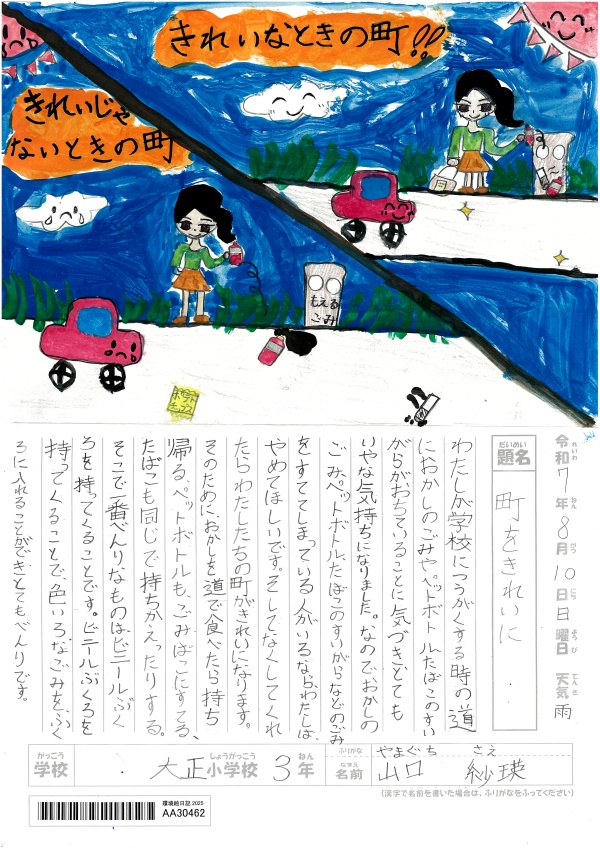 きれいなときの町!!
きれいじゃ
ないときの町
もえる
ごみ
ポテト
チップス
令和7年8月10日日曜日 天気 雨
れいわ ねん がつ にち ようび てんき
だいめい
題名
町をきれいに
わたしが学校につうがくする時の道
におかしのごみやペットボトル、たばこのすい
がらがおちていることに気づきとても
いやな気持ちになりました。なのでおかしの
ごみ、ペットボトル、たばこのすいがらなどのごみ
をすててしまっている人がいるならわたしは、
やめてほしいです。そしてなくしてくれ
たらわたしたちの町がきれいになります。
そのために、おかしを道で食べたら持ち
帰る、ペットボトルも、ごみばこにすてる、
たばこも同じで持ちかえったりする。
そこで一番べんりなものは、ビニールぶく
ろを持ってくることです。ビニールぶくろを
持ってくることで、色いろなごみをふく
ろに入れることができとてもべんりです。
がっこう しょうがっこう ねん
学校 大正小学校 3年
ふりがな やまぐち さえ
なまえ
名前 山口 紗瑛
(漢字で名前を書いた場合は、ふりがなをふってください)
環境絵日記 2025
AA30462